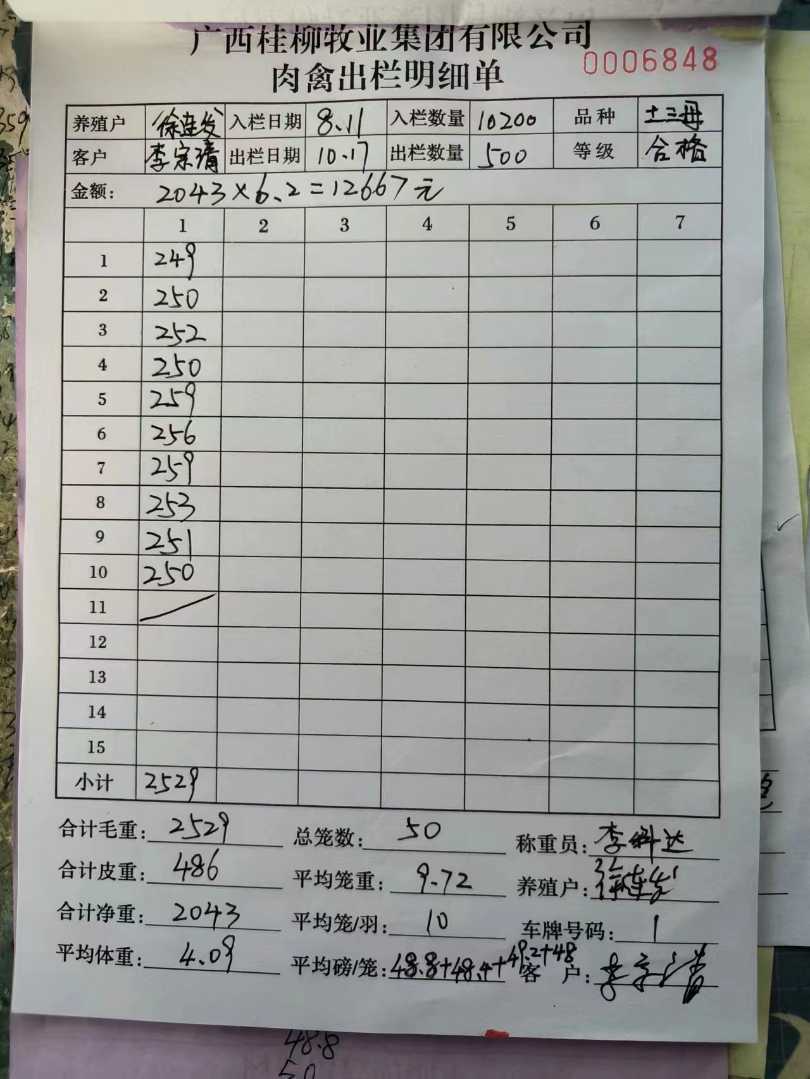 广西桂柳牧业集团有限公司
肉禽出栏明细单 0006848
养殖户 徐连发 入栏日期 8.11 入栏数量 10200 品种 土三母
客户 李宗清 出栏日期 10.17 出栏数量 500 等级 合格
金额: 2043×6.2=12667元
1 2 3 4 5 6 7
1 249
2 250
3 252
4 250
5 259
6 256
7 259
8 253
9 251
10 250
11
12
13
14
15
小计 2529
合计毛重: 2529 总笼数: 50 称重员: 李科达
合计皮重: 486 平均笼重: 9.72 养殖户: 徐连发
合计净重: 2043 平均笼/羽: 10 车牌号码: 1
平均体重: 4.09 平均磅/笼: 48.8+48.4+49.2+48 客户: 李宗清
48.8
50